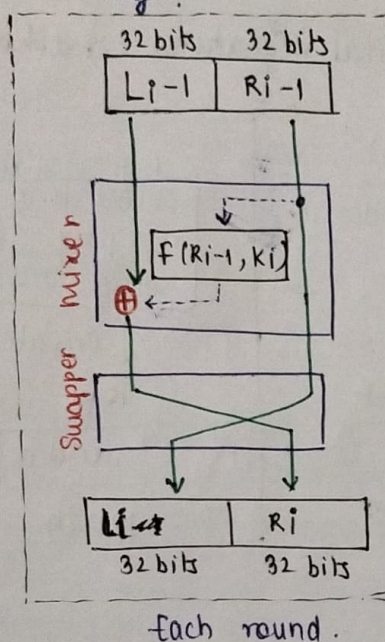 32 bits 32 bits
Li-1 Ri-1
Mixer
f(Ri-1, Ki)
⊕
Swapper
Li Ri
32 bits 32 bits
Each round.